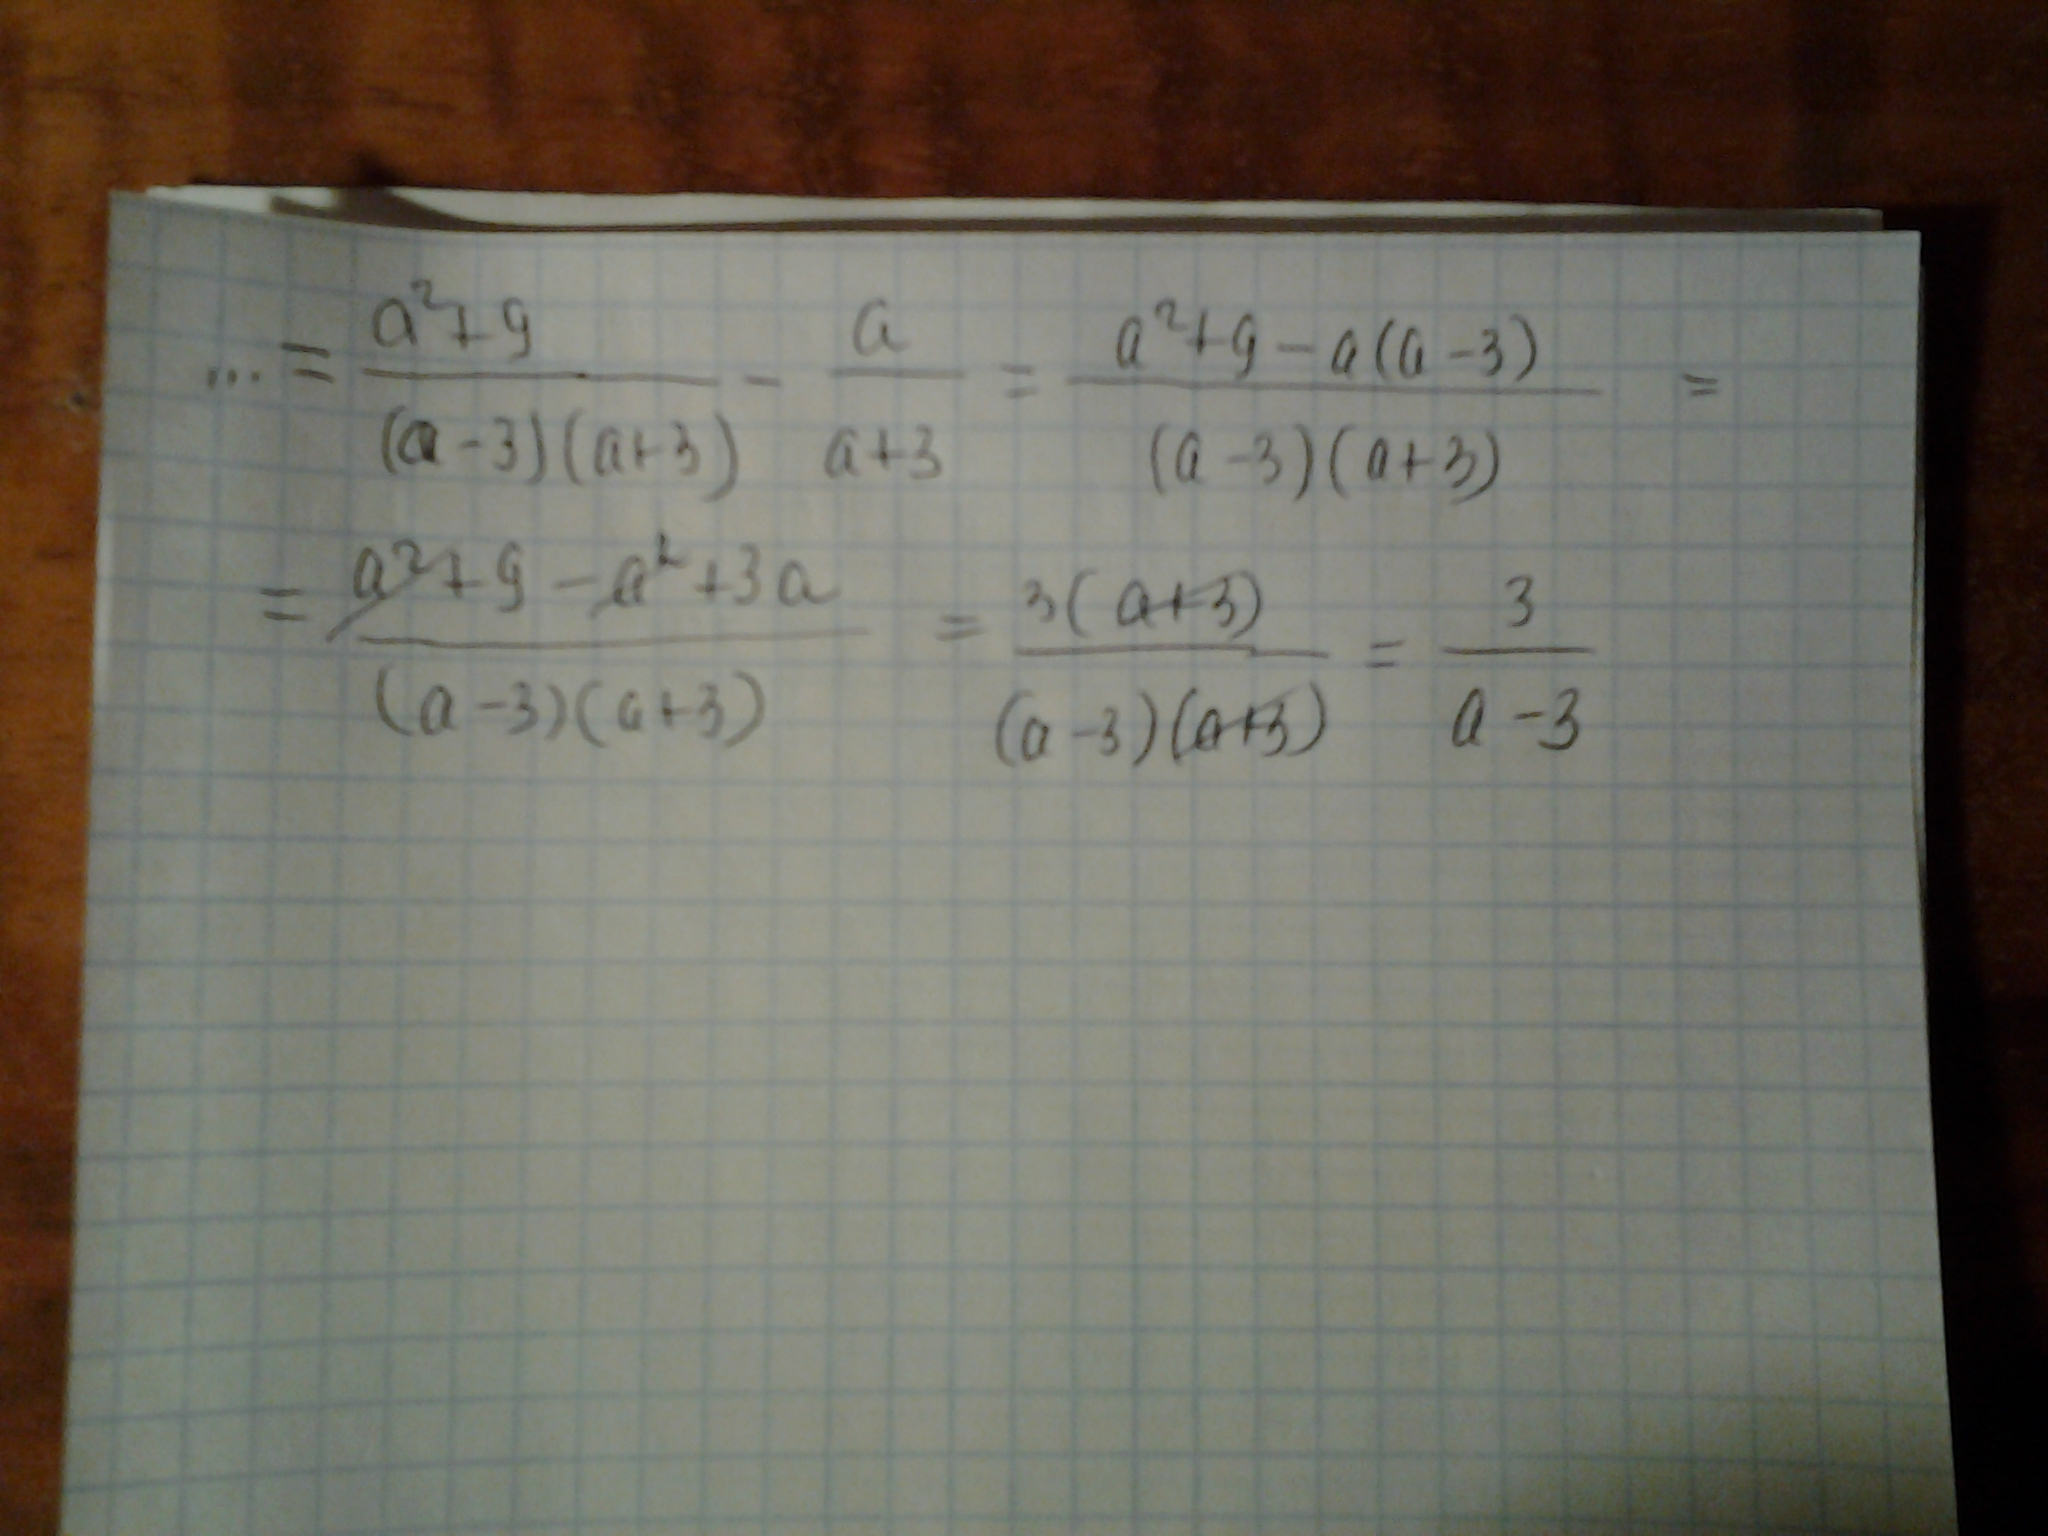 ... = (a²+9)/((a-3)(a+3)) - a/(a+3) = (a²+9-a(a-3))/((a-3)(a+3)) =
= (a²+9-a²+3a)/((a-3)(a+3)) = 3(a+3)/((a-3)(a+3)) = 3/(a-3)